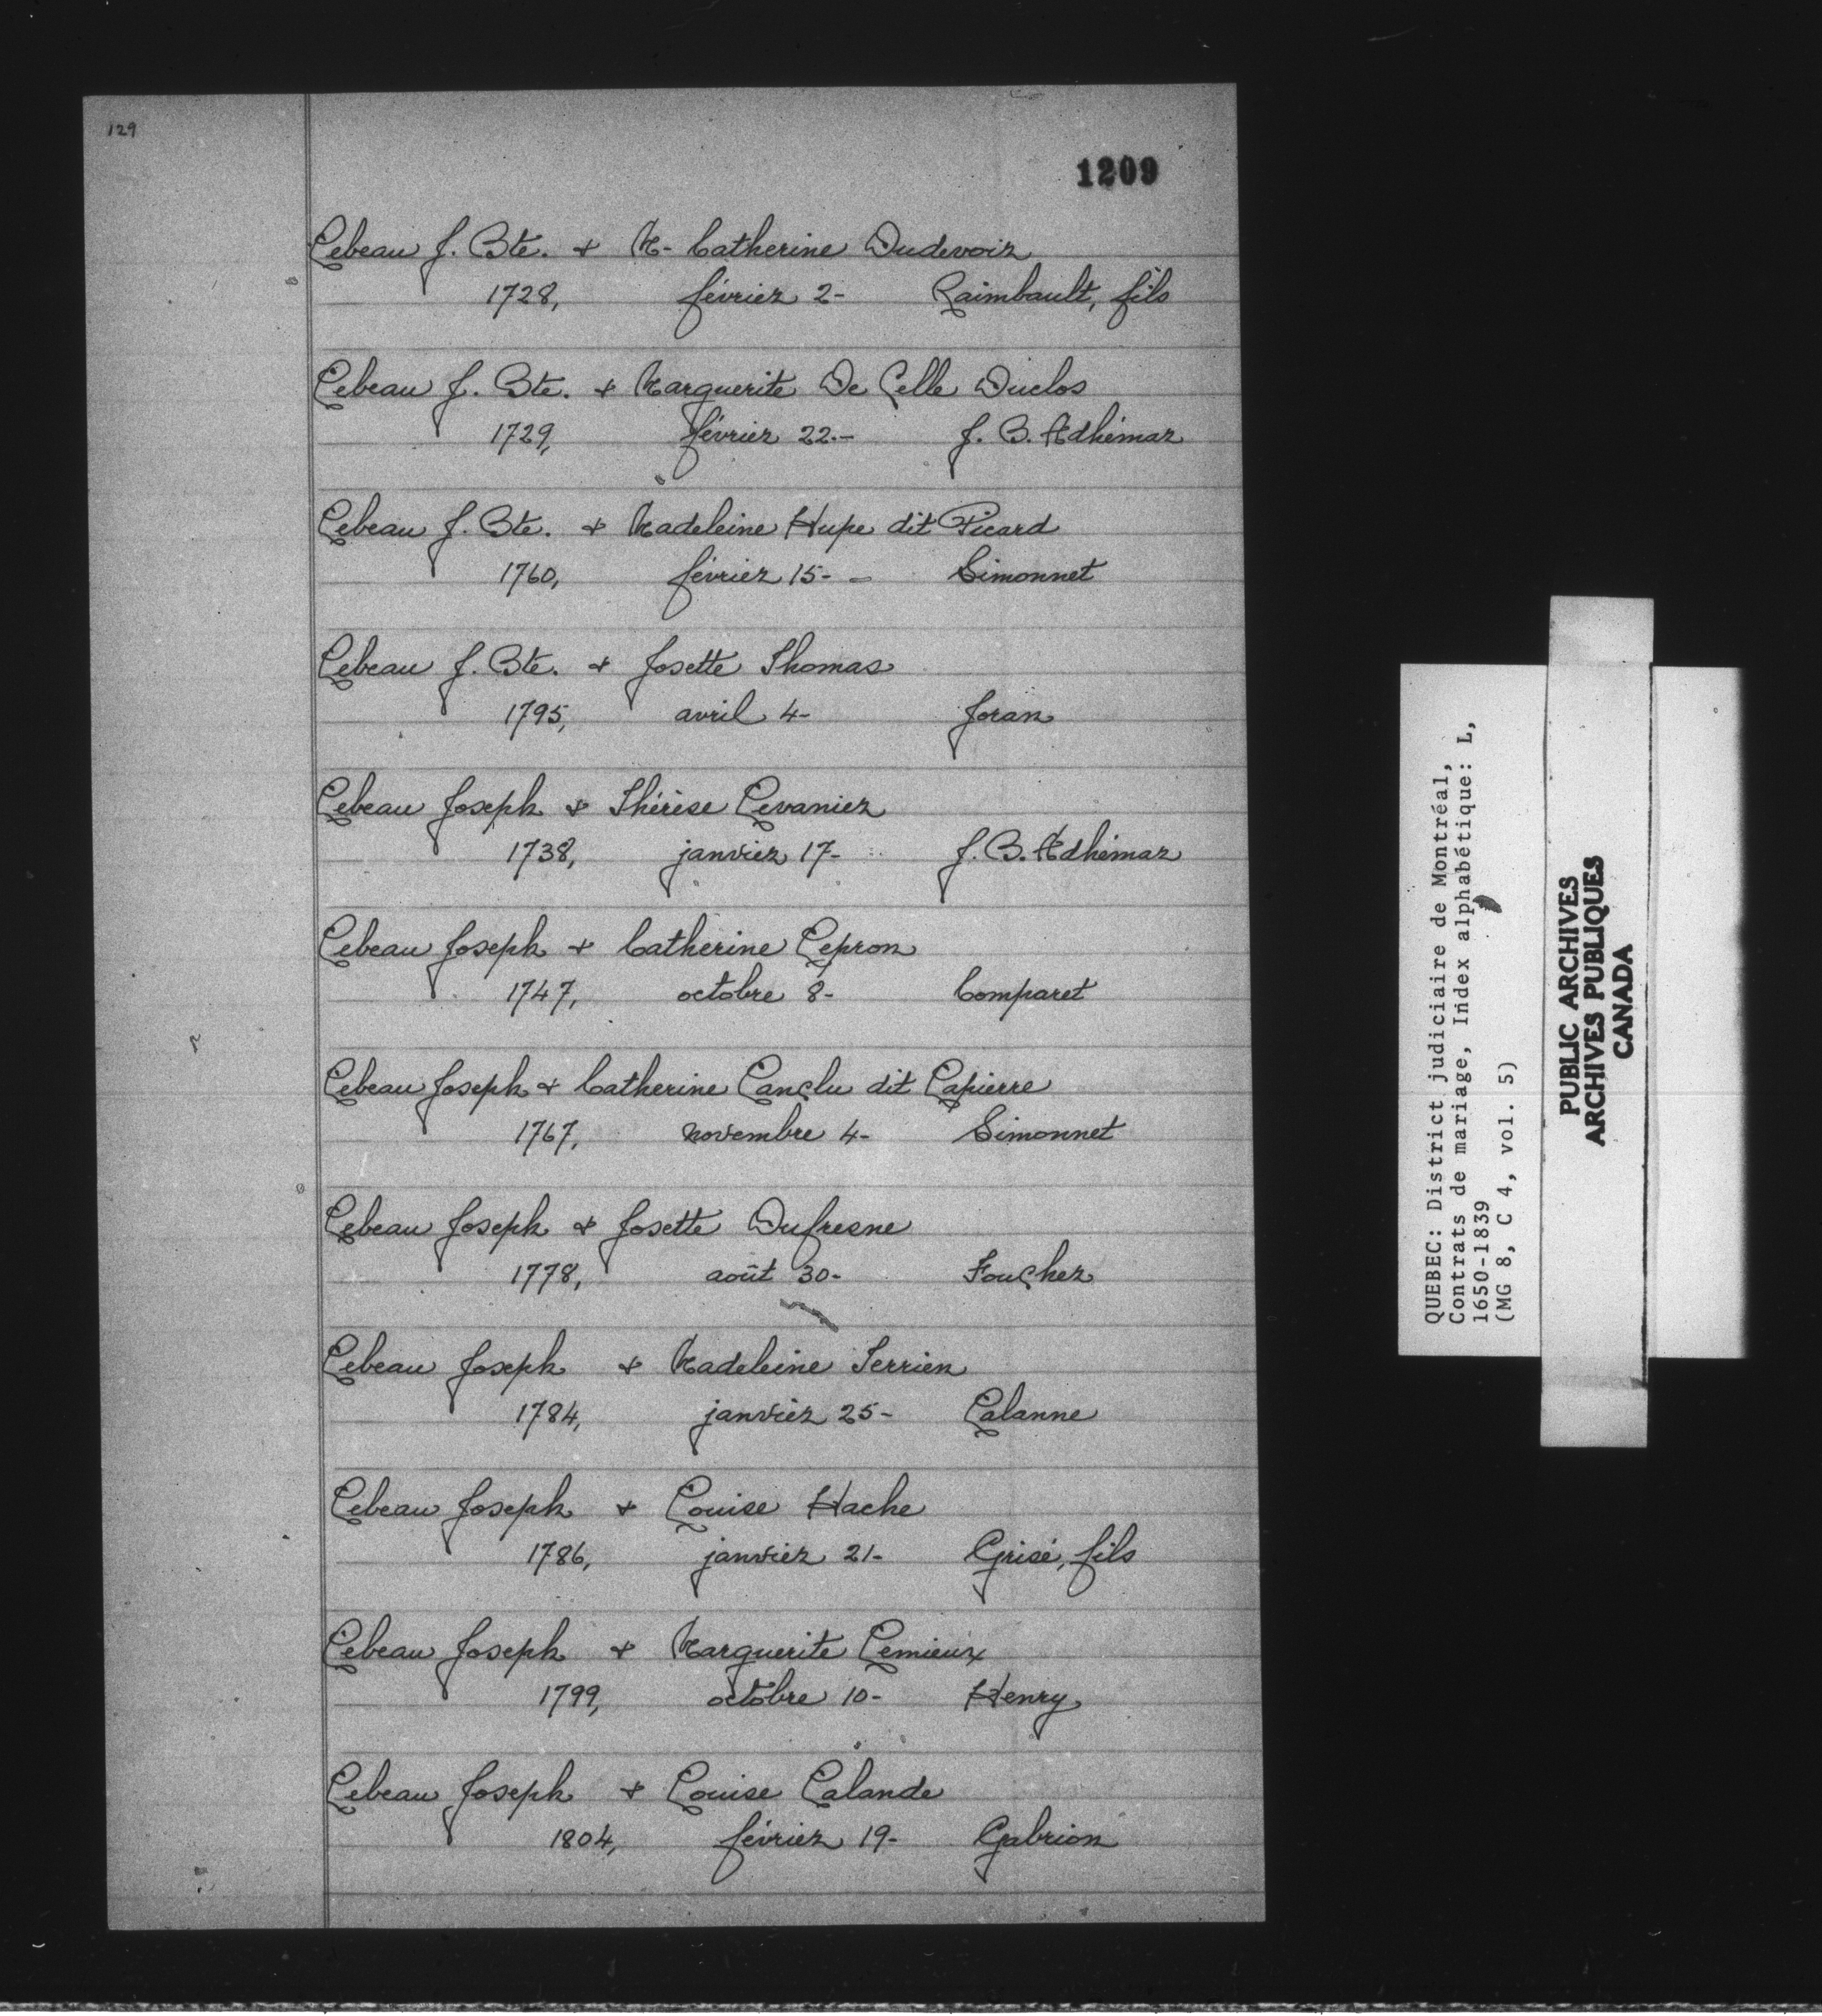 129
1209
Lebeau J. Bte. & M- Catherine Dudevoir
1728, février 2- Raimbault, fils
Lebeau J. Bte. & Marguerite De Celle Duclos
1729, février 22.- J. B. Adhémar
Lebeau J. Bte. & Madeleine Hupe dit Picard
1760, février 15- - Simonnet
Lebeau J. Bte. & Josette Thomas
1795, avril 4- Joran
Lebeau Joseph & Thérèse Levanier
1738, janvier 17- J. B. Adhémar
Lebeau Joseph & Catherine Lepron
1747, octobre 8- Comparet
Lebeau Joseph & Catherine Lanclu dit Lapierre
1767, novembre 4- Simonnet
Lebeau Joseph & Josette Dufresne
1778, août 30- Foucher
Lebeau Joseph & Madeleine Terrien
1784, janvier 25- Lalanne
Lebeau Joseph & Louise Hache
1786, janvier 21- Grisé, fils
Lebeau Joseph & Marguerite Lemieux
1799, octobre 10- Henry
Lebeau Joseph & Louise Lalande
1804, février 19- Gabrion
QUEBEC: District judiciaire de Montréal,
Contrats de mariage, Index alphabétique: L,
1650-1839
(MG 8, C 4, vol. 5)
PUBLIC ARCHIVES
ARCHIVES PUBLIQUES
CANADA